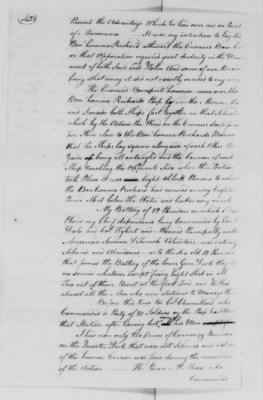 438
Prevent the Advantage Which he had over me in Point
of Manœuvre It was my intention to lay the
Bon homme Richard athwart the Enemies Bow but
as that Opperation required great dexterity in the
ment of both Sails and Helm And some of our Braces
being Shot away it did not exactly succeed to my wish
The Enemies Bowsprit however came over the
Bon homme Richards Poop by the Mizen Mast
and I made both Ships fast together in that Situation
which by the Action of the Wind on the Enemies Sails
her Stern close to the Bon homme Richards Bow
that the Ships lay square along side of each other the
Yards being all entangled and the Cannon of each
Ship touching the Opponents Side when this Position
took Place it was Eight OClock Previous to which
the Bon homme Richard had received sundry Eighteen
Pound Shot below the Water and leaked very much
My Battery of 12 Pounders on which I had
Placed my Chief dependance being Commanded by
Dale and Col. Weibert and Manned Principally with
American Seamen & French Volunteers was entirely
Silenced and Abandoned as to the Six old 18 Pounders
that formed the Battery of the lower Gun Deck they did
no service whatever except firing Eight Shot in all
Two out of them Burst at the first Fire and Killed
almost all the Men who were Stationed to Manage them
Before this time too Col. Chamillard who
Commanded a Party of 20 Soldiers on the Poop had
that Station after having lost his Men
I had now only two Pieces of Cannon 9 Pounders
on the Quarter Deck that were not Silenced and not one
of the heavier Cannon was fired during the remainder
of the Action The Purser M. Mease who
Commanded